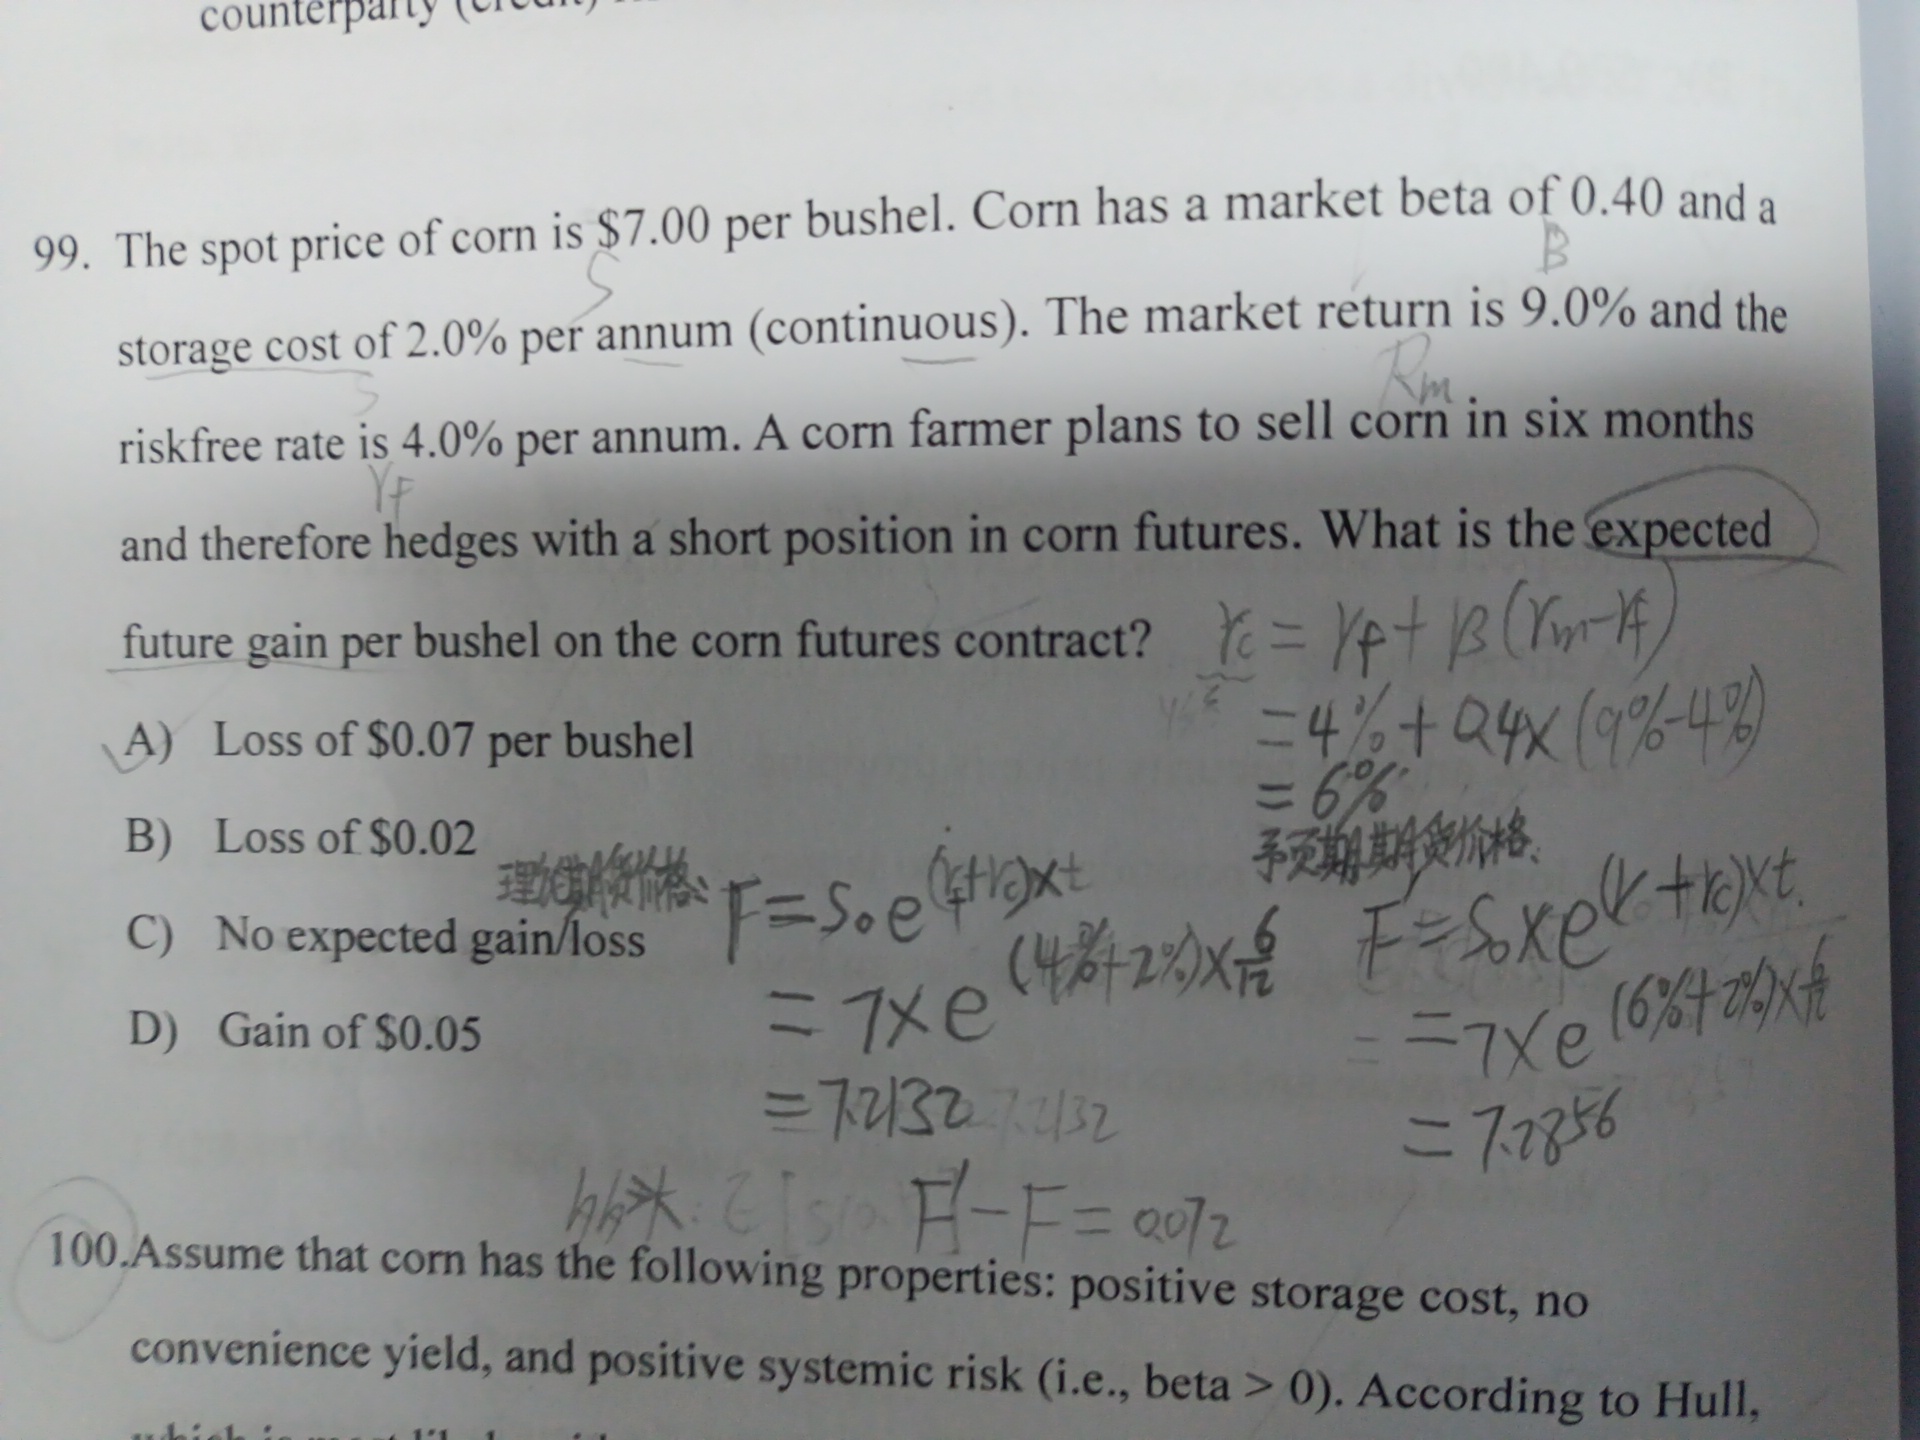 counterparty (credit)
99. The spot price of corn is $7.00 per bushel. Corn has a market beta of 0.40 and a
S
B
storage cost of 2.0% per annum (continuous). The market return is 9.0% and the
S
Rm
riskfree rate is 4.0% per annum. A corn farmer plans to sell corn in six months
rF
and therefore hedges with a short position in corn futures. What is the expected
future gain per bushel on the corn futures contract?
rc = rf + β(rm-rf)
A) Loss of $0.07 per bushel
= 4% + 0.4x (9%-4%)
= 6%
B) Loss of $0.02
预期期货价格:
理论期货价格:
F = S₀e^(rf+rc)xt
F' = S₀xe^(r+rc)xt.
C) No expected gain/loss
= 7xe^(4%+2%)x6/12
= 7xe^(6%+2%)x6/12
D) Gain of $0.05
= 7.2132
7.2132
= 7.2856
F'-F = 0.072
100.Assume that corn has the following properties: positive storage cost, no
convenience yield, and positive systemic risk (i.e., beta > 0). According to Hull,
which is